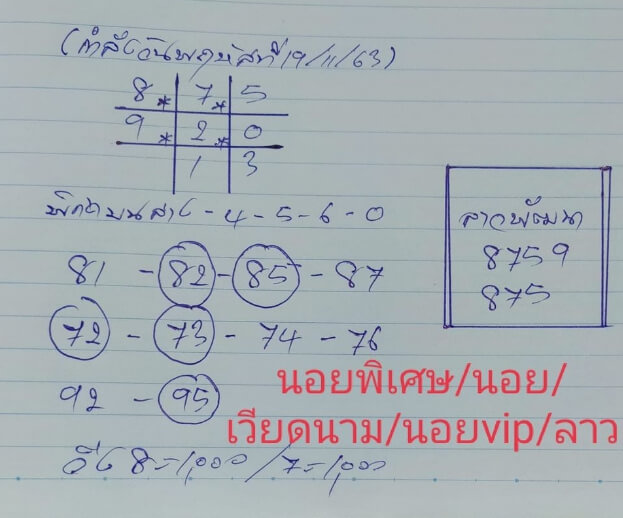 (กำลังวันพฤหัสที่ 19/11/63)
8* 7* 5
9* 2* 0
1 3
พิกัดบนล่าง - 4 - 5 - 6 - 0
81 - 82 - 85 - 87
72 - 73 - 74 - 76
92 - 95
วิ่ง 8 = 1,000 / 7 = 1,000
ลาวพัฒนา
8759
875
นอยพิเศษ/นอย/
เวียดนาม/นอยvip/ลาว